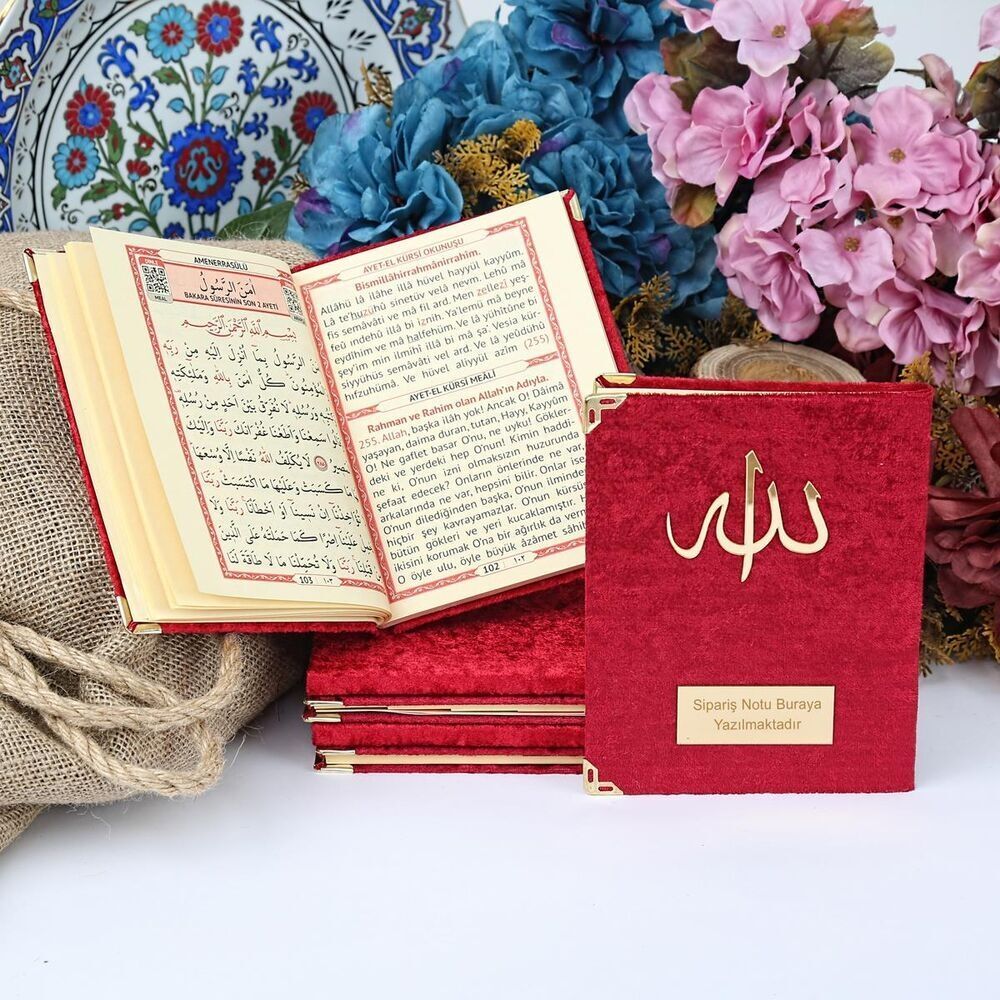 AMENERRASÛLÜ
DİNLE
MEAL
اٰمَنَ الرَّسُولُ
BAKARA SÛRESİNİN SON 2 AYETİ
بِسْمِ اللّٰهِ الرَّحْمٰنِ الرَّحِيمِ
الرَّسُولُ بِمَٓا اُنْزِلَ اِلَيْهِ مِنْ رَبِّه۪
كُلٌّ اٰمَنَ بِاللّٰهِ وَمَلٰٓئِكَتِه۪
وَرُسُلِه۪ لَا نُفَرِّقُ بَيْنَ اَحَدٍ مِنْ رُسُلِه۪
سَمِعْنَا وَاَطَعْنَا غُفْرَانَكَ رَبَّنَا
لَا يُكَلِّفُ اللّٰهُ نَفْسًا اِلَّا وُسْعَهَا
مَا كَسَبَتْ وَعَلَيْهَا مَا اكْتَسَبَتْ رَبَّنَا
تُؤَاخِذْنَٓا اِنْ نَس۪ينَٓا اَوْ اَخْطَأْنَا رَبَّنَا
عَلَيْنَٓا اِصْرًا كَمَا حَمَلْتَهُ عَلَى الَّذ۪ينَ
قَبْلِنَا رَبَّنَا وَلَا تُحَمِّلْنَا مَا لَا طَاقَةَ لَنَا
103 ١٠٣
AYET-EL KÜRSİ OKUNUŞU
Bismillâhirrahmânirrahîm.
Allâhü lâ ilâhe illâ hüvel hayyül kayyûm.
Lâ te'huzu hû sinetüv velâ nevm. Lehû mâ
fis semâvâti ve mâ fil ard. Men zellezî yeş-
feu ındehû illâ bi iznih. Ya'lemü mâ beyne
eydîhim ve mâ halfehüm. Ve lâ yühîtûne bi
şey'im min ilmihî illâ bi mâ şa'. Vesia kür-
siyyühüs semâvâti vel ard. Ve lâ yeûdühû
hıfzuhümâ. Ve hüvel aliyyül azîm (255)
AYET-EL KÜRSİ MEÂLİ
Rahman ve Rahim olan Allah'ın Adıyla.
255. Allah, başka ilâh yok! Ancak O! Dâimâ
yaşayan, daima duran, tutan, Hayy, Kayyûm
O! Ne gaflet basar O'nu, ne uyku! Gökler-
deki ve yerdeki hep O'nun! Kimin haddi-
ne ki, O'nun izni olmaksızın huzurunda
şefaat edecek? Onların önlerinde ne var,
arkalarında ne var, hepsini bilir. Onlar ise
O'nun dilediğinden başka, O'nun ilminden
hiçbir şey kavrayamazlar. O'nun kürsüsü
bütün gökleri ve yeri kucaklamıştır.
ikisini korumak O'na bir ağırlık da verm
O öyle ulu, öyle büyük âzâmet sâhib
102 ١٠٢
الله
Sipariş Notu Buraya
Yazılmaktadır